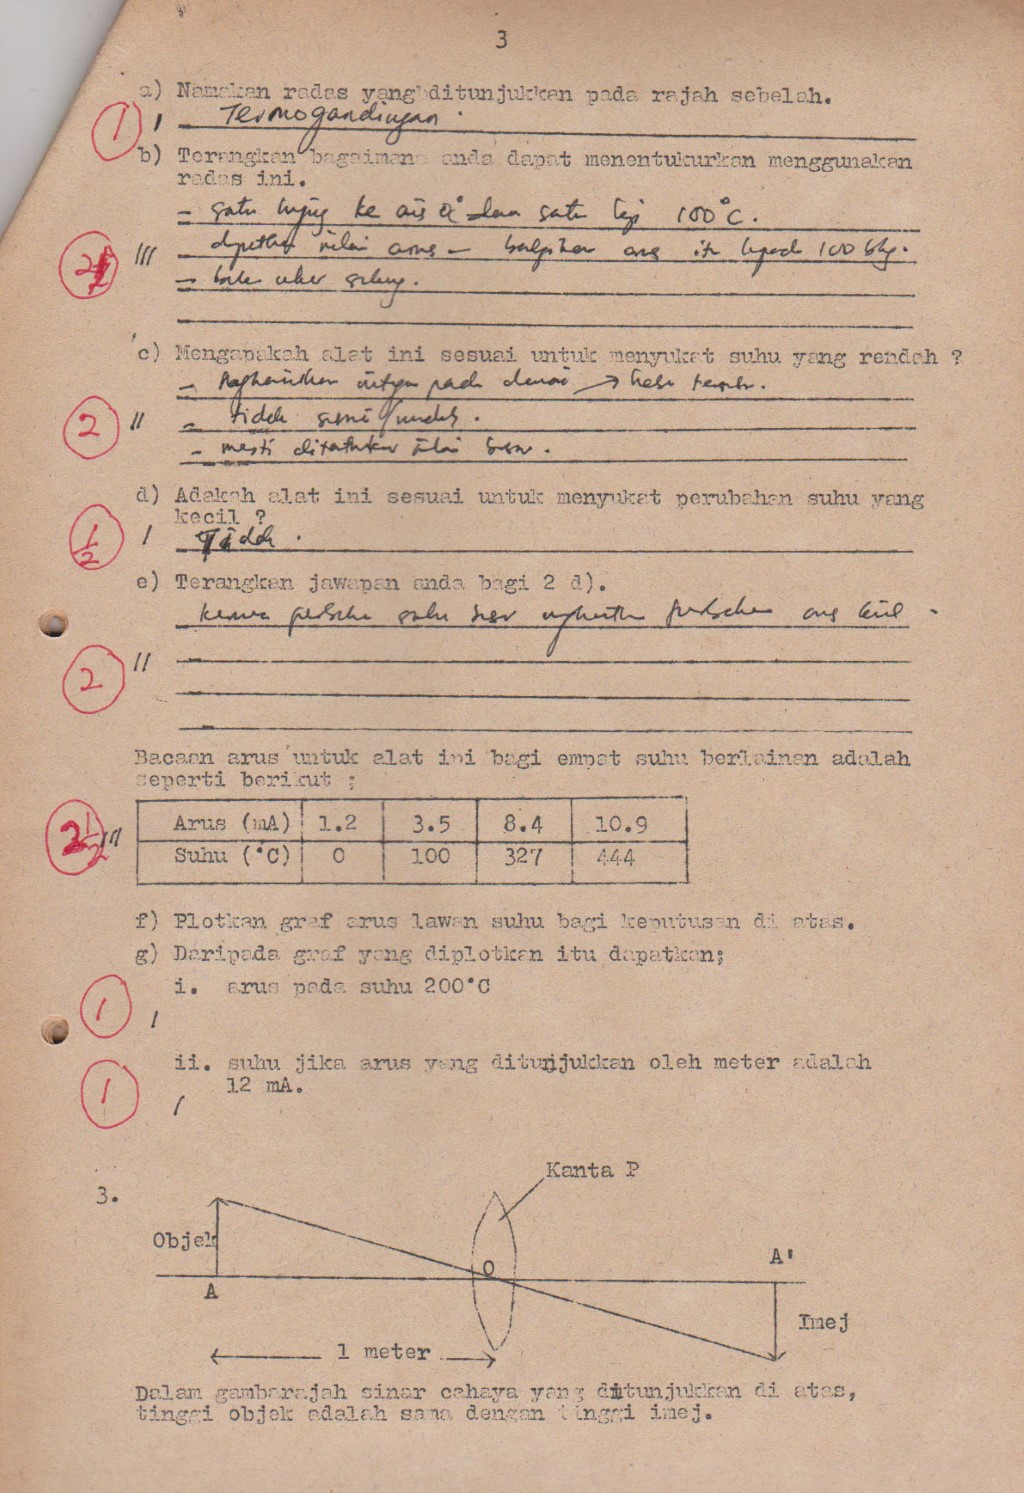 3
a) Namakan radas yang ditunjukkan pada rajah sebelah.
1
Termogandingan.
b) Terangkan bagaimana anda dapat menentukurkan menggunakan
radas ini.
- satu hujung ke ais 0° dan satu lagi 100°C.
2½
nilai arus - bahagikan arus itu kepada 100 bhg.
-
c) Mengapakah alat ini sesuai untuk menyukat suhu yang rendah ?
- pada →
2
- tidak
- mesti
d) Adakah alat ini sesuai untuk menyukat perubahan suhu yang
kecil ?
1/2
Tidak.
e) Terangkan jawapan anda bagi 2 d).
kerana suhu arus kecil
2
Bacaan arus untuk alat ini bagi empat suhu berlainan adalah
seperti berikut ;
2½
Arus (mA) 1.2 3.5 8.4 10.9
Suhu (°C) 0 100 327 444
f) Plotkan graf arus lawan suhu bagi keputusan di atas.
g) Daripada graf yang diplotkan itu dapatkan;
i. arus pada suhu 200°C
1
ii. suhu jika arus yang ditunjukkan oleh meter adalah
12 mA.
1
3.
Kanta P
Objek
O
A'
A
Imej
1 meter
Dalam gambarajah sinar cahaya yang ditunjukkan di atas,
tinggi objek adalah sama dengan tinggi imej.